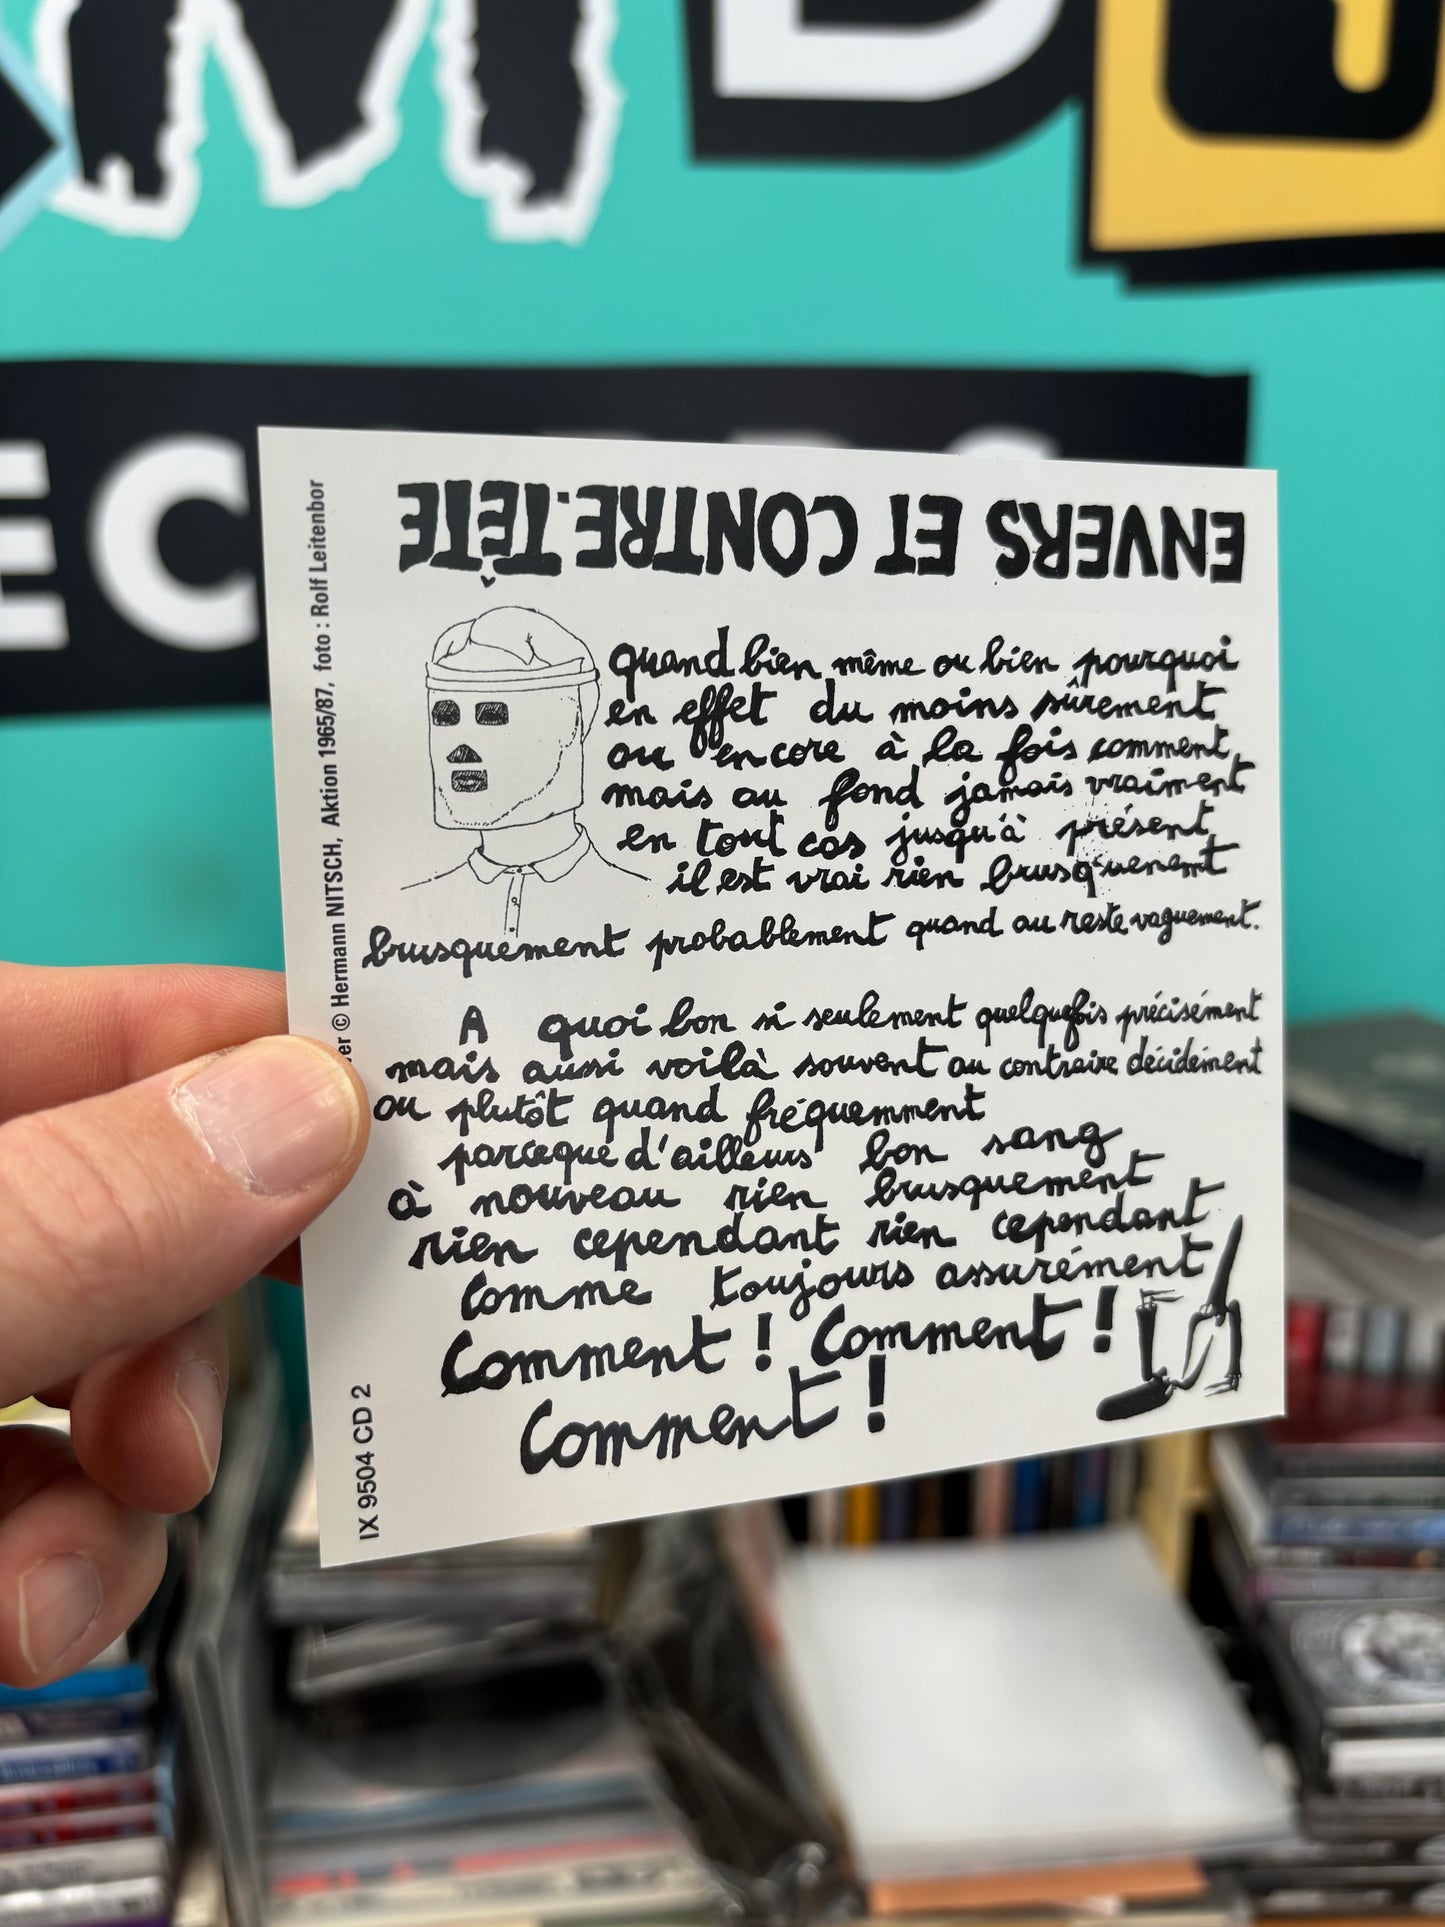 ENVERS ET CONTRE.TÊTE
quand bien même ou bien pourquoi
en effet du moins sûrement
ou encore à la fois comment
mais au fond jamais vraiment
en tout cas jusqu'à présent
il est vrai rien brusquement
brusquement probablement quand au reste vaguement.
A quoi bon si seulement quelquefois précisément
mais aussi voilà souvent au contraire décidément
ou plutôt quand fréquemment
parceque d'ailleurs bon sang
à nouveau rien brusquement
rien cependant rien cependant
comme toujours assurément
Comment ! Comment !
Comment !
er © Hermann NITSCH, Aktion 1965/87, foto : Rolf Leitenbor
IX 9504 CD 2
EC